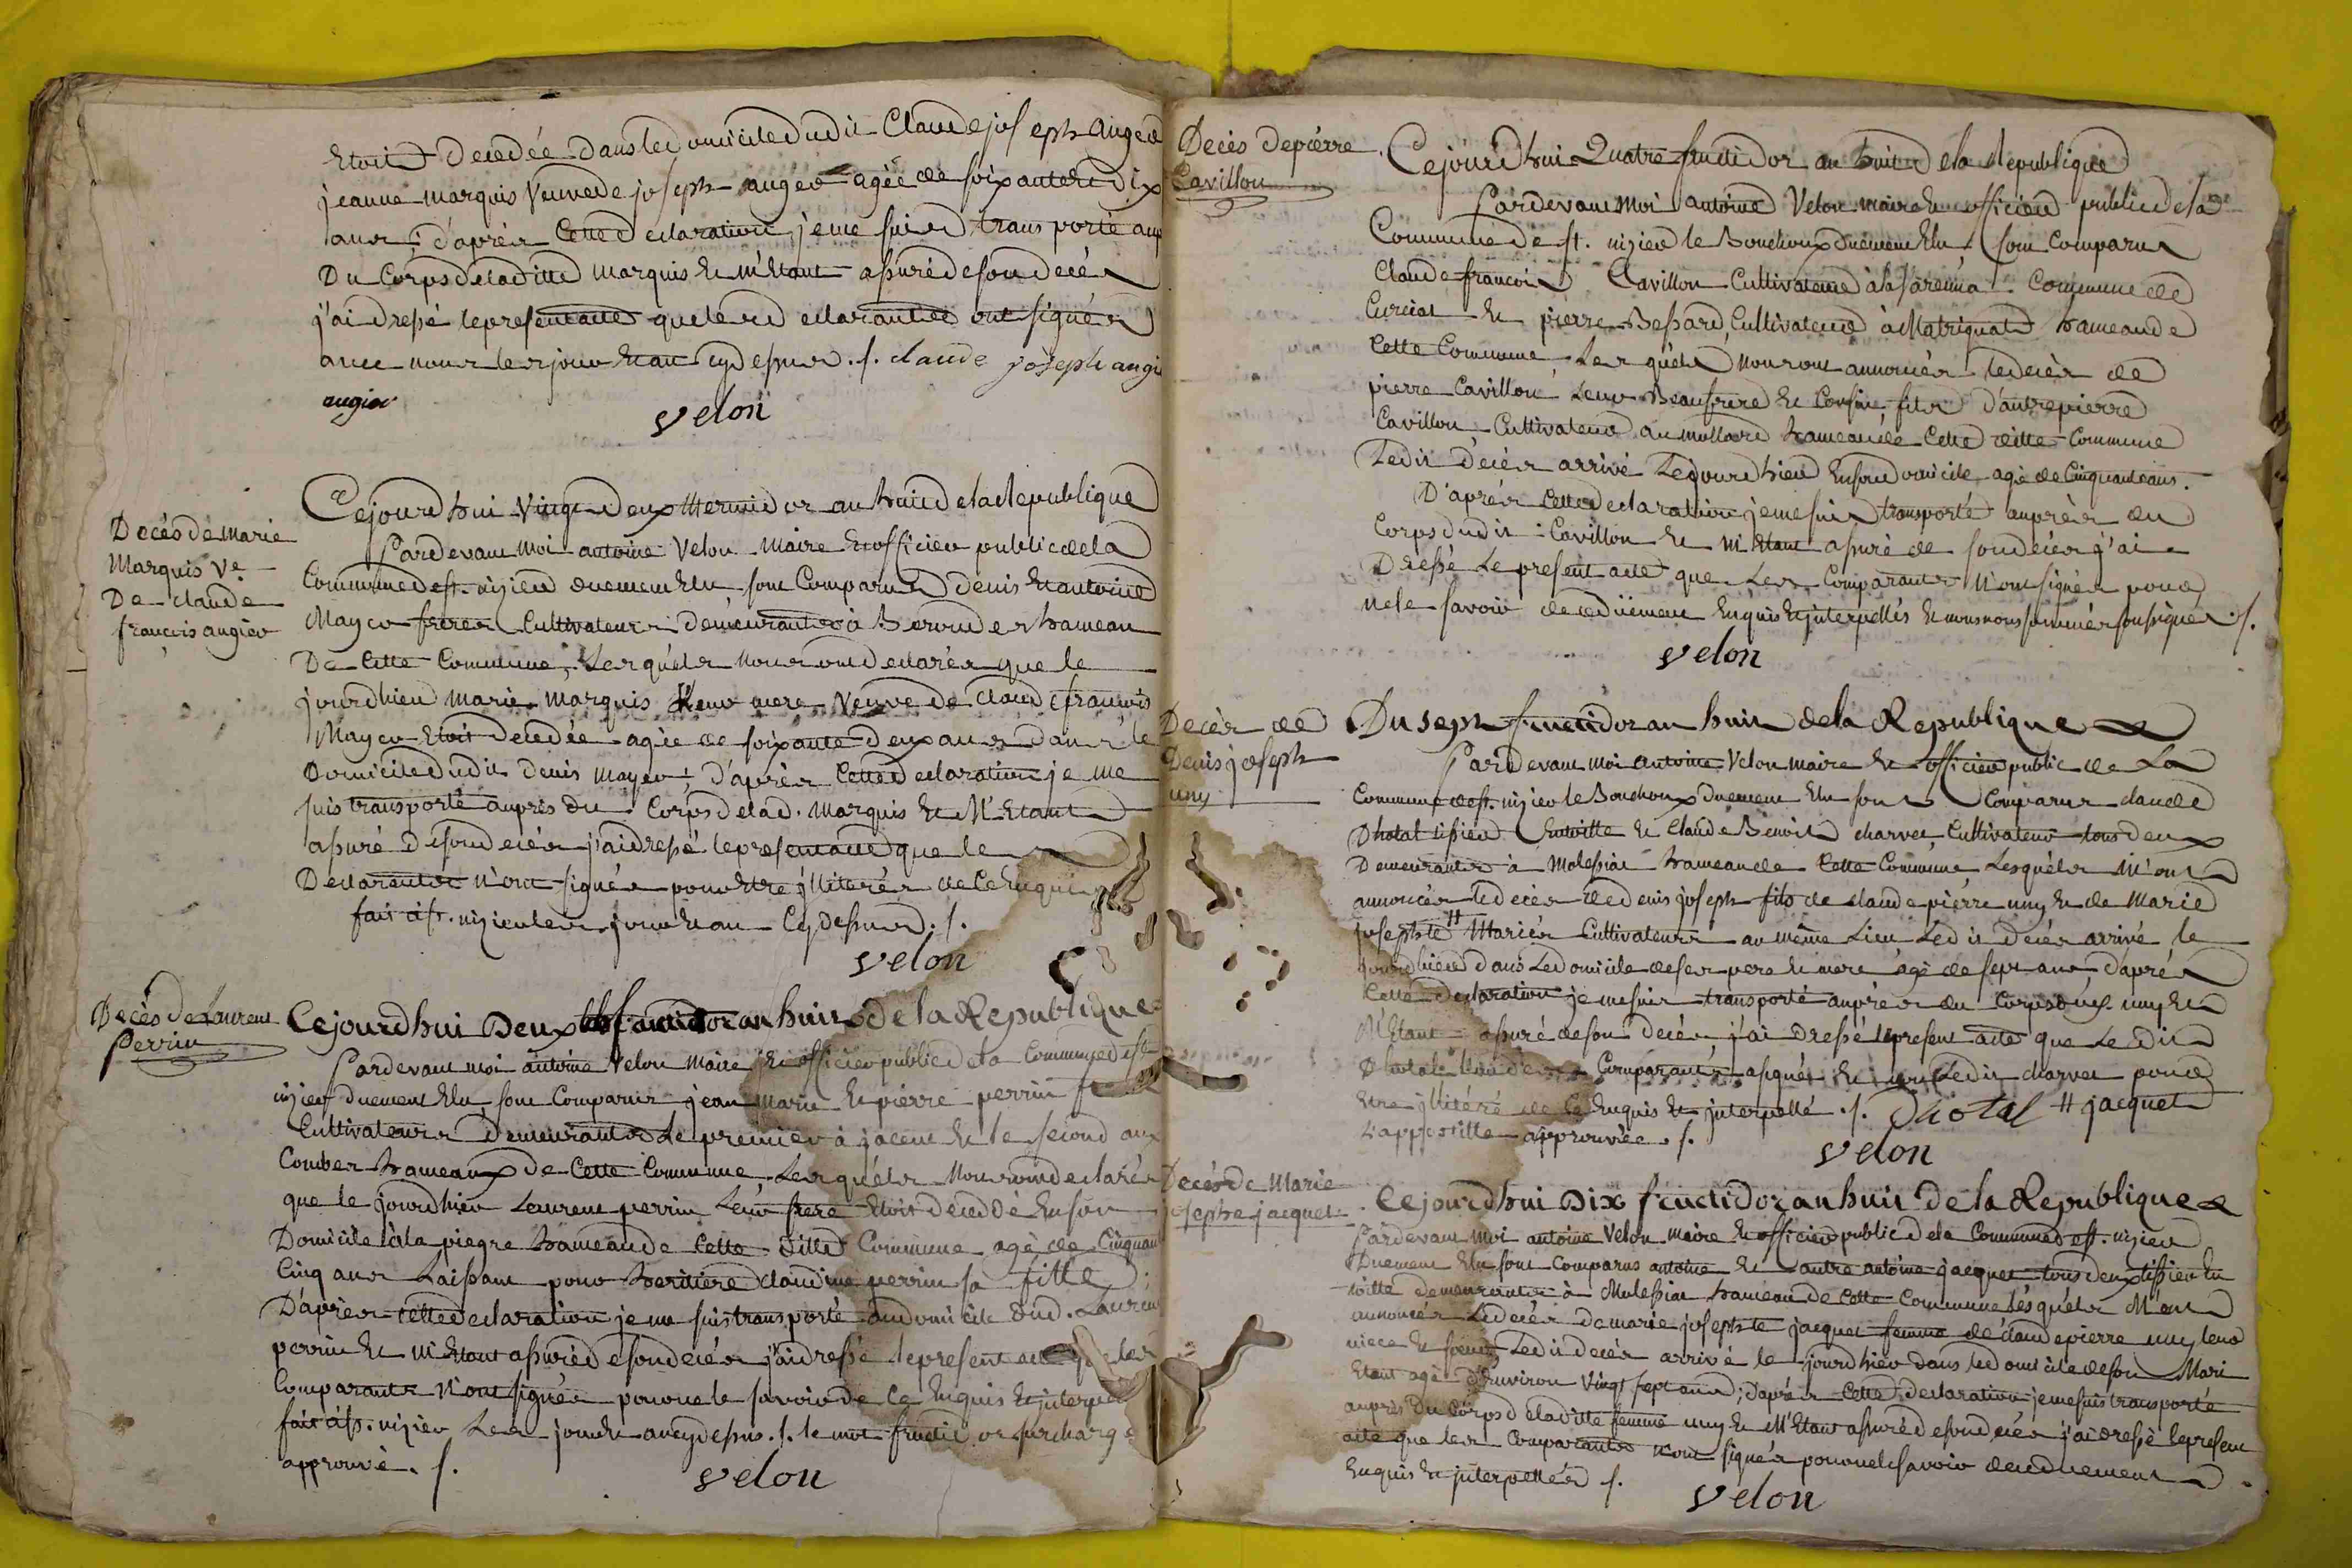 Etoit Decedée dans le domicile dudit Claude joseph augier
jeanne marquis Veuve de joseph augier agée de soixante et dix
ans, d'aprés Cette declaration, je me suis transporté aup
Du Corps de laditte marquis et m'Etant assuré de son decés
j'ai dressé le present acte que les declarants ont signés
avec nous les jour et an cy dessus ./. claude joseph augi
augier velon
Decés de Marie
Marquis Ve
De claude
francois augier
Cejourd'hui Vingt deux thermidor an huit de la Republique
Pardevant Moi antoine Velon Maire et officier public de la
Commune de st. nizier duement Elu sont Comparus denis et antoine
Mayer freres Cultivateurs Demeurants à Beronde hameau
De Cette Commune, Lesquéls nous ont declarés que le
jourd'hier Marie Marquis leur mere Veuve de claude francois
Mayer Etoit Decedée agée de soixante deux ans dans le
Domicile dudit Denis mayer, d'aprés Cette declaration je me
suis transporté auprés du Corps de lad. Marquis et M'Etant
assuré de son decés j'ai dressé le present acte que les
Declarants n'ont signés pour Etre jlliterés de Ce Enquis
fait à st. nizier les jour et an Cy dessus ./.
velon
Decès de Laurent
Perrin
Cejourd'hui Deux fructidor an huit de la Republique
Pardevant moi antoine Velon Maire et officier public de la Commune de st
nizier duement Elu sont Comparus jean Marie et pierre perrin
Cultivateurs Demeurants Le premier à jacent et le second aux
Combes hameaux de Cette Commune Lesquéls Nous ont declarés
que le jourd'hier Laurent perrin Leur frere Etoit decedé En son
Domicile à la piegre hameau de Cette ditte Commune agé de Cinquan
Cinq ans Laissant pour heritiere claudine perrin sa fille;
D'aprés cette declaration je me suis transporté au domicile dud. Laurent
perrin et m'Etant assuré de son decés j'ai dressé le present acte que les
Comparants N'ont signés pour ne le savoir de Ce Enquis et jnterpe
fait à st. nizier Les jour et an cy dessus ./. le mot fructidor surchargé
approuvé. /.
velon
Decès de pierre
Cavillon
Cejourd'hui Quatre fructidor an huit de la Republique
Pardevant Moi antoine Velon maire et officier public de la
Commune de st. nizier le Bouchoux duement Elu, sont Comparus
Claude francois Cavillon Cultivateur à la Varenna Commune de
Curciat et pierre Bessard Cultivateur à Matrignat hameau de
Cette Commune, Lesquéls nous ont annoncés le decés de
pierre Cavillon Leur Beaufrere et Cousin fils d'autre pierre
Cavillon Cultivateur au mollard hameau de Cette ditte Commune
Ledit decés arrivé Lejourd'hier En son domicile, agé de Cinquante ans.
D'aprés Cette declaration je me suis transporté auprés du
Corps dudit Cavillon et m'Etant assuré de son decés j'ai
Dressé Le present acte que Les Comparants N'ont signés pour
ne le savoir de ce duëment Enquis et jnterpellés et nous nous sommes soussignés ./.
velon
Decés de
Denis joseph
uny
Du sept fructidor an huit de la Republique
Pardevant moi antoine Velon maire et officier public de La
Commune de st. nizier le Bouchoux duement Elu sont Comparus claude
Dhotal tissier Entoille et Claude Benoit charvet, Cultivateur tous deux
Demeurants à Molessiat hameau de Cette Commune Lesquéls M'ont
annoncés le decés de denis joseph fils de claude pierre uny et de Marie
josephte H Mariés Cultivateurs au même Lieu Ledit decés arrivé le
jourd'hier dans Le domicile de ses pere et mere agé de sept ans, d'aprés
Cette declaration je me suis transporté auprés du Corps dud. uny et
M'Etant assuré de son decés j'ai Dressé le present acte que Ledit
Dhotal Comparant a signé et non Ledit charvet pour
Etre jlliteré de Ce Enquis et jnterpellé ./. Dhotal H jacquet
L'appostille approuvée ./.
velon
Decés de Marie
josephe jacquet
Cejourd'hui Dix fructidor an huit de la Republique
Pardevant Moi antoine Velon Maire et officier public de la Commune de st. nizier
Duement Elu sont Comparus antoine et autre antoine jacquet tous deux tissier En
toille demeurants à Molessiat hameau de Cette Commune lésquéls M'ont
annoncés Le decés de marie josephte jacquet femme de claude pierre uny leur
niece et soeur, Ledit decés arrivé le jourd'hier dans le domicile de son Mari
Etant agé d'Environ Vingt sept ans; d'aprés Cette declaration je me suis transporté
auprés du Corps de laditte femme uny et M'Etant assuré de son decés j'ai dressé le present
acte que les Comparants n'ont signés pour ne le savoir de ce duement
Enquis et jnterpellés ./.
velon